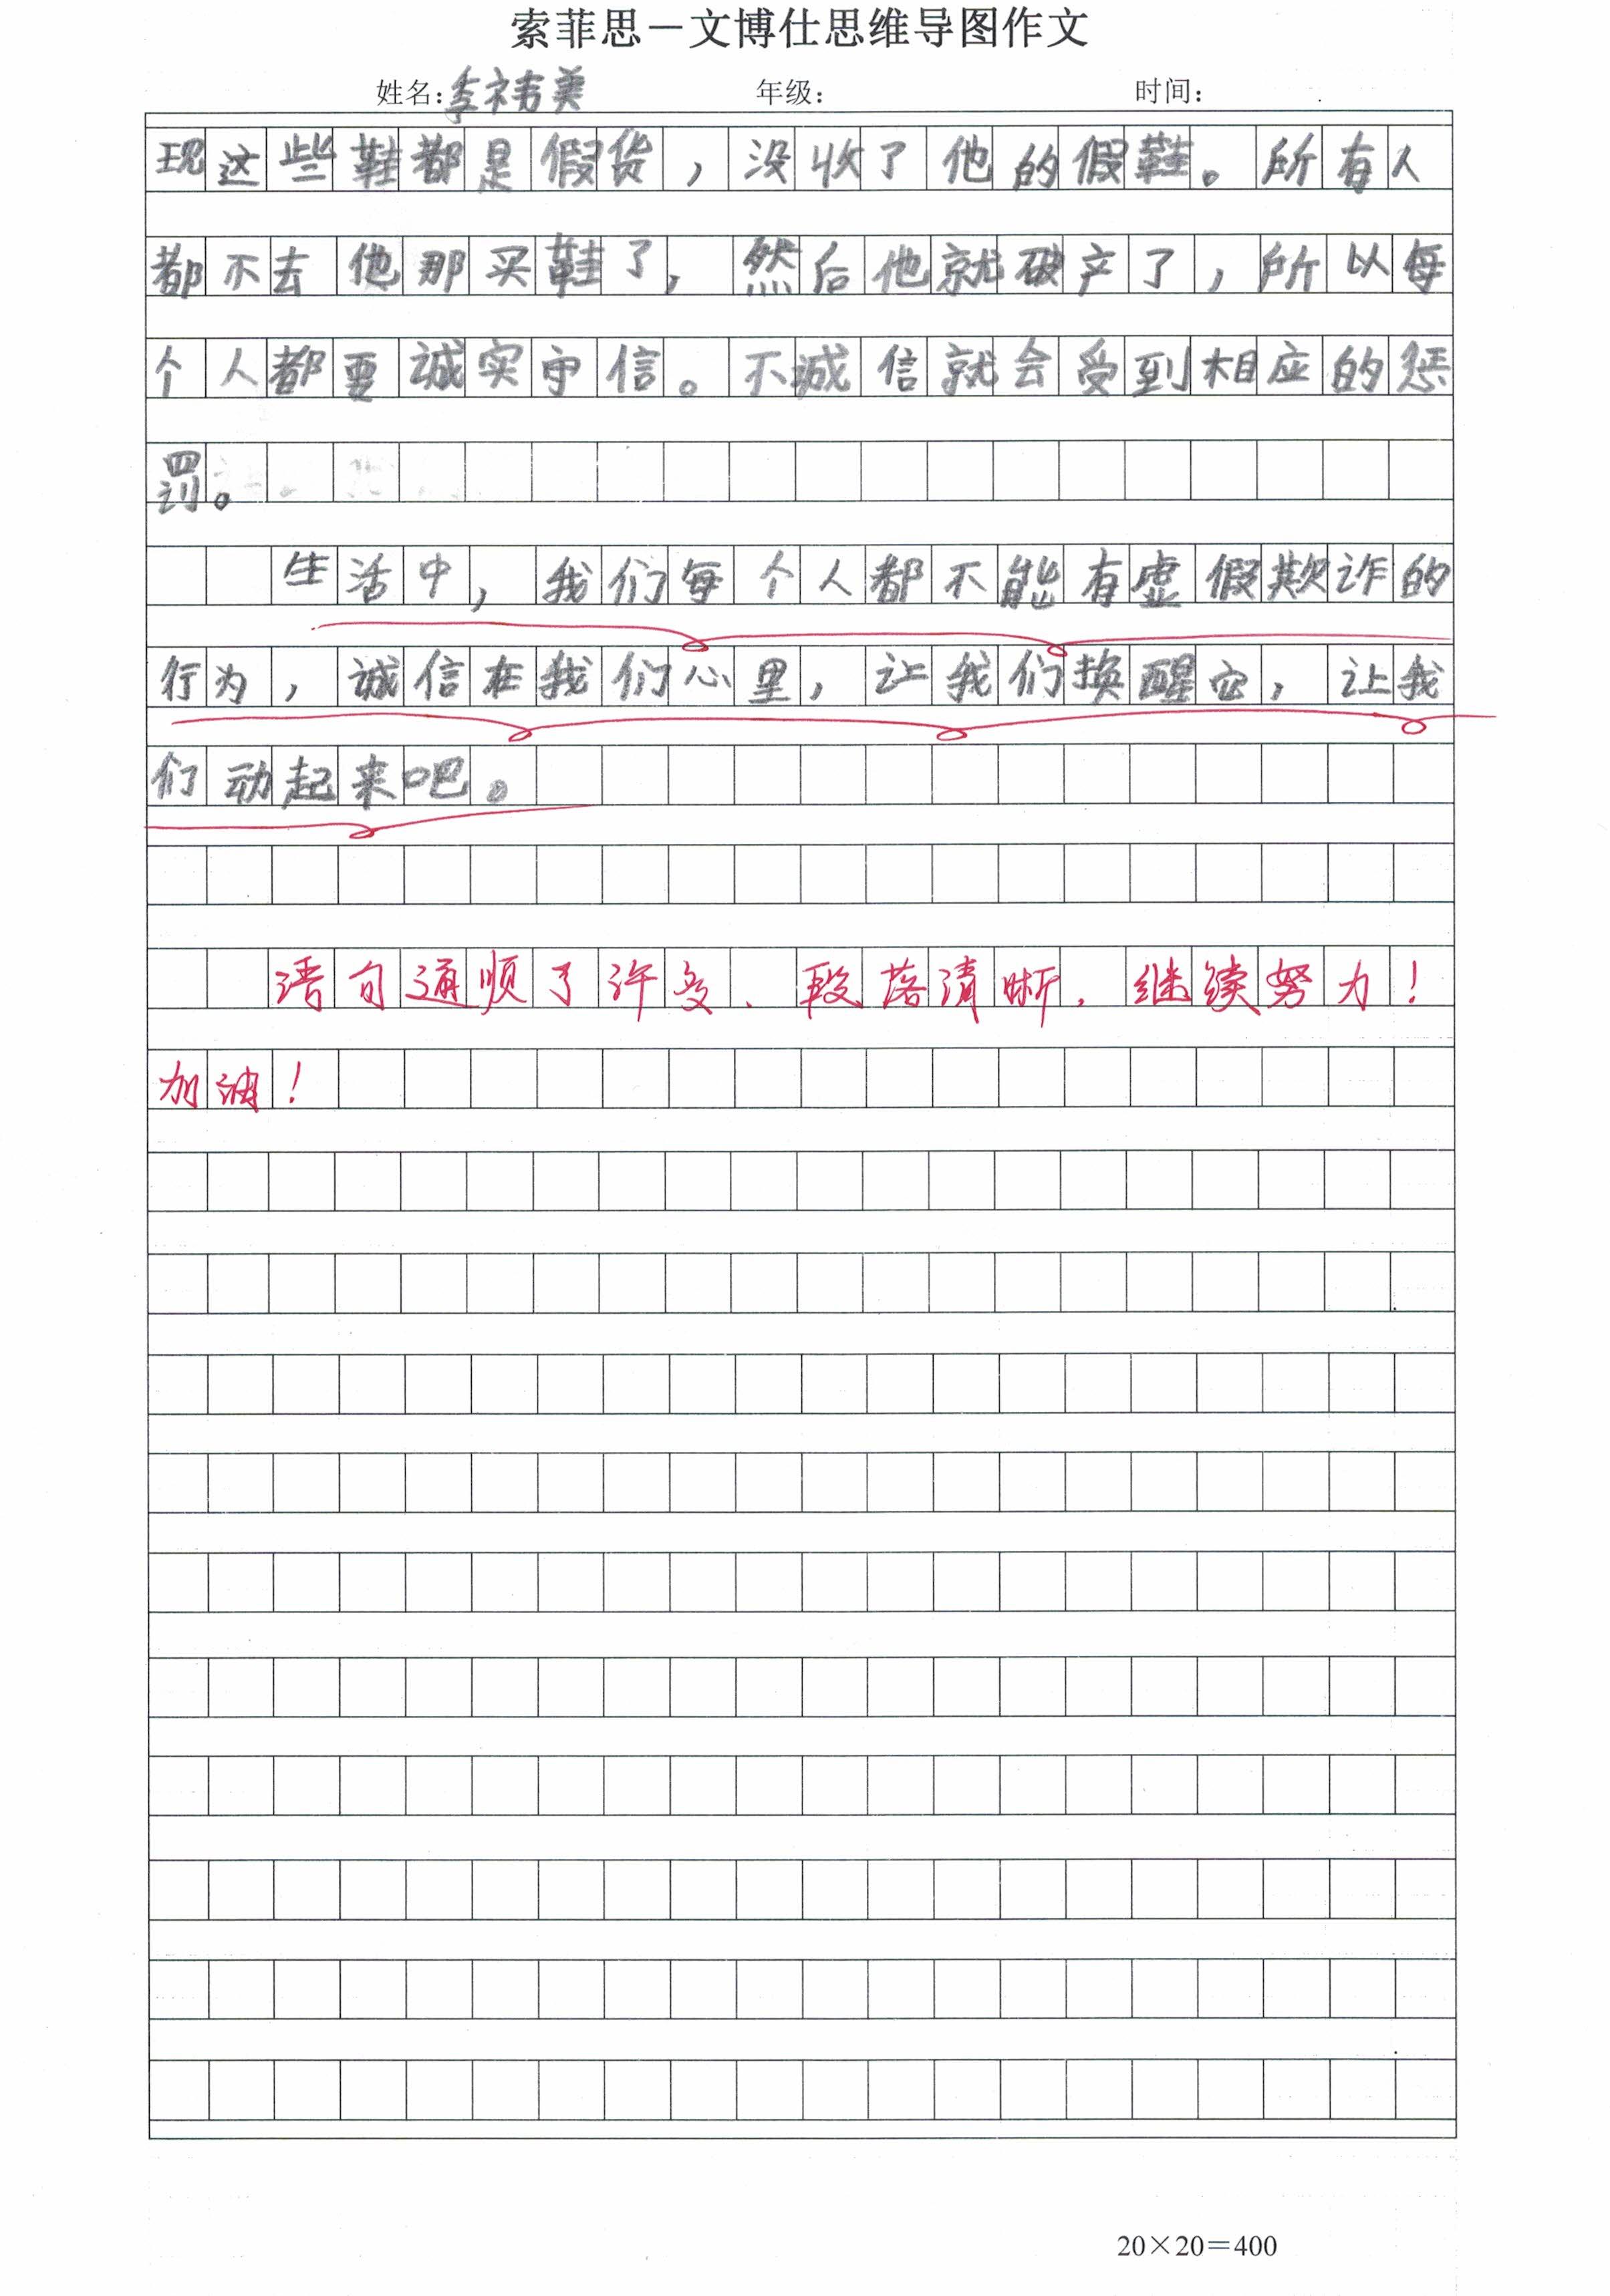 索菲思－文博仕思维导图作文
姓名：李祎美 年级： 时间：
现这些鞋都是假货，没收了他的假鞋。所有人
都不去他那买鞋了，然后他就破产了，所以每
个人都要诚实守信。不诚信就会受到相应的惩
罚。
生活中，我们每个人都不能有虚假欺诈的
行为，诚信在我们心里，让我们换醒它，让我
们动起来吧。
语句通顺了许多、段落清晰，继续努力！
加油！
20×20＝400